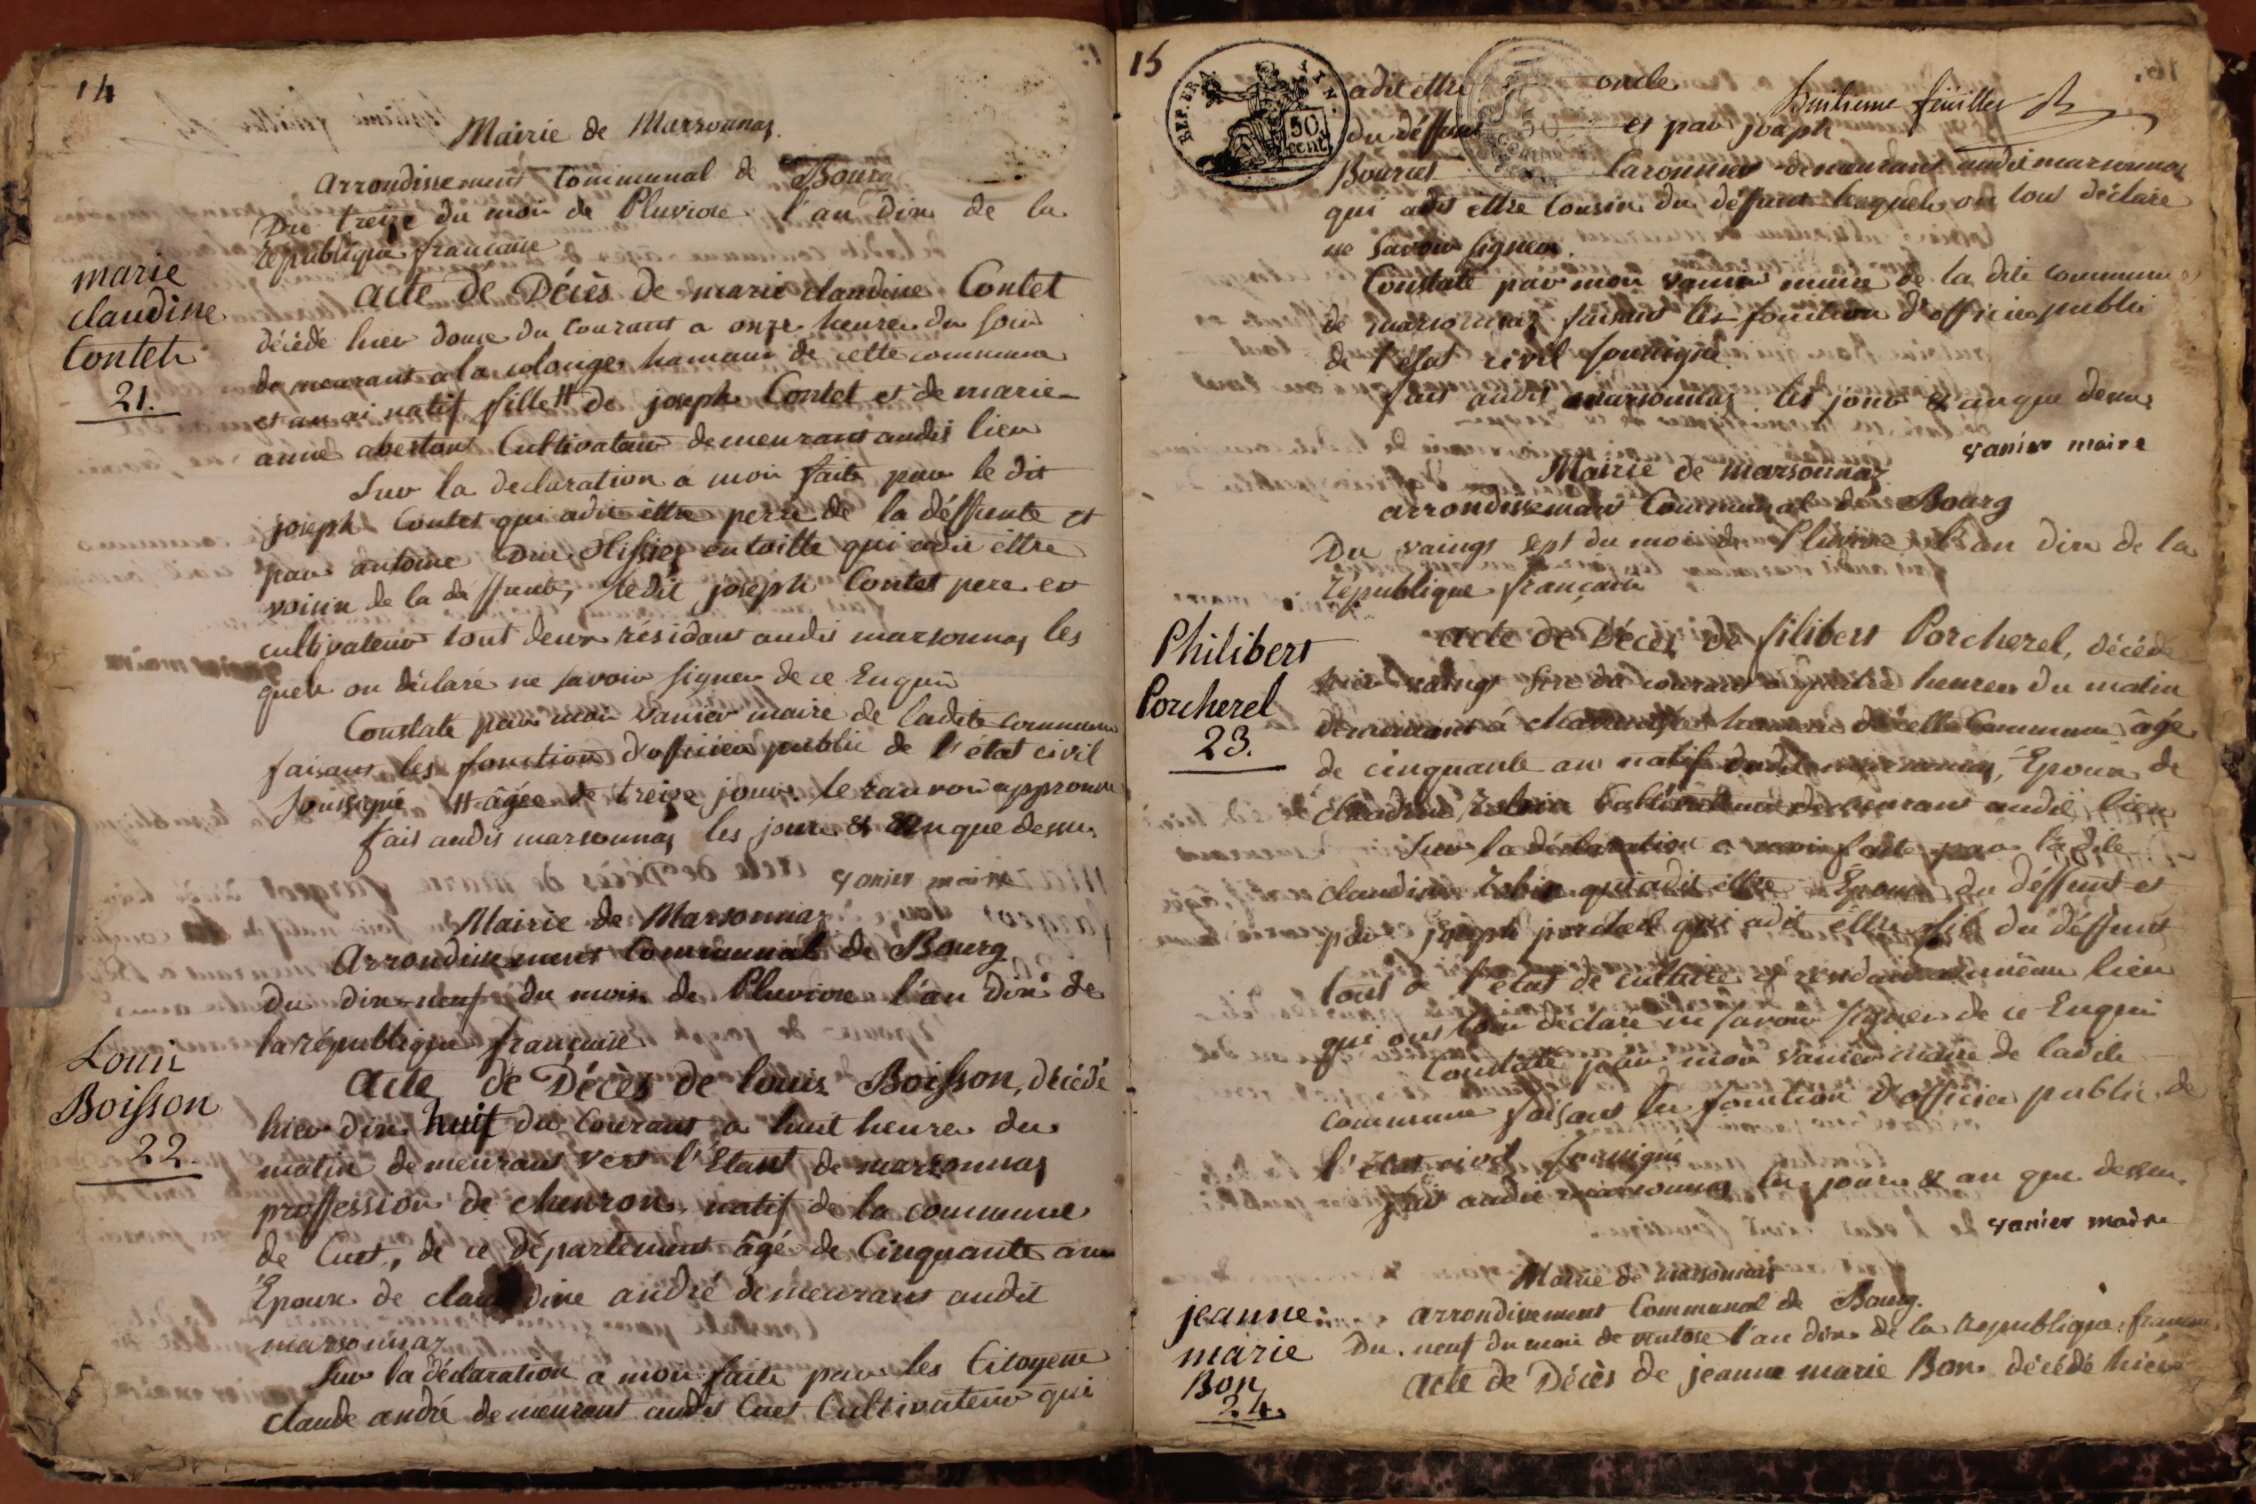 14
Mairie de Marsonnaz
arrondissement Communal de Bourg
Du treize du mois de Pluviose l'an dix de la
république française
marie
claudine
Contet
21.
acte de Décès de marie claudine Contet
décédé hier douze du courant a onze heures du soir
demeurant a la colonge hamaux de cette commune
et an ai natif fille # de joseph Contet et de marie
anne cultivateur demeurant audit lieu
Sur la declaration a moi faite par le dit
joseph Contet qui adit ettre perre de la déffunte et
par antoine en taille qui adit ettre
voisin de la déffunte, ledit joseph Contet pere et
cultivateur tout deux résidant audit marsonnaz les
quels on déclaré ne savoir signer de ce Enquis
Constaté par moi vanier maire de ladite commune
faisant les fonction d'officier public de l'état civil
soussigné # âgée de treize jour. le ranvoi approuvé
fait audit marsonnaz les jours & an que dessu.
vanier maire
Mairie de Marsonnaz
Arrondissement Communal de Bourg
du dix-neuf du mois de Pluviose l'an dix de
la république française
Louis
Boisson
22.
acte de Décès de louis Boisson, décédé
hier dix huit du courant a huit heures du
matin demeurant vers l'Etant de marsonnaz
proffession de cheuron, natif de la commune
de Cuet, de ce département âgé de Cinquante ans
Epoux de claudine andré demeurant audit
marsonnaz
Sur la déclaration a moi faite par les Citoyens
claude andré demeurant audit Cuet Cultivateur qui
15
REP. FRA
50
cent
adit ettre oncle
huitieme feuillet
du déffunt et par joseph
Bouvet demeurant audit marsonnaz
qui adit ettre Cousin du déffunt lesquels on tous déclaré
ne savoir signer.
Constaté par moi vanier maire de la dite commune
de marsonnaz faisant les fonction d'officier public
de l'état civil soussigné
fait audit marsonnaz les jour & an que dessus
vanier maire
Mairie de marsonnaz
arrondissement Communal de Bourg
Du vaingt sept du mois de Pluviose l'an dix de la
république française
Philibert
Porcherel
23.
acte de Décès de filibert Porcherel, décédé
hier vaingt six du courant a quatre heures du matin
demeurant à hamaux de cette Commune âgé
de cinquante an natif dudit marsonnaz, Epoux de
claudine Robin Cultivateur demeurant audit lieu
Sur la déclaration a moi faite par la dite
claudine Robin qui adit ettre Epouse du déffunt et
par joseph porcherel qui adit ettre fils du déffunt
tous de l'état de culture et residant au même lieu
qui ont tous declaré ne savoir signer de ce Enquis
Constaté par moi vanier maire de ladite
commune faisant les fonction d'officier public de
l'état civil soussigné
fait audit marsonnaz les jours & an que dessu.
vanier maire
Mairie de marsonnaz
arrondissement Communal de Bourg.
jeanne
marie
Bon
24.
Du neuf du mois de ventose l'an dix de la république française
acte de Décès de jeanne marie Bon décédé hier